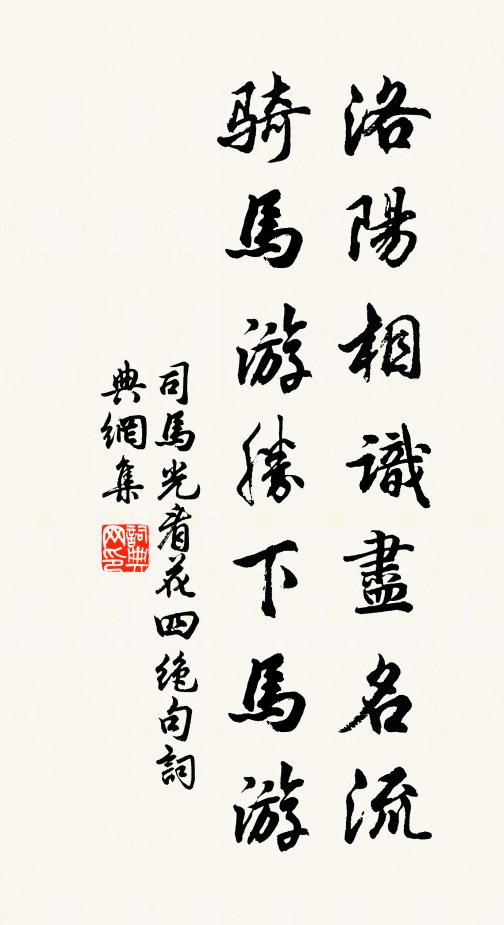 洛陽相識盡名流
騎馬游勝下馬游
司馬光看花四絶句詞
典網集
詞典网印